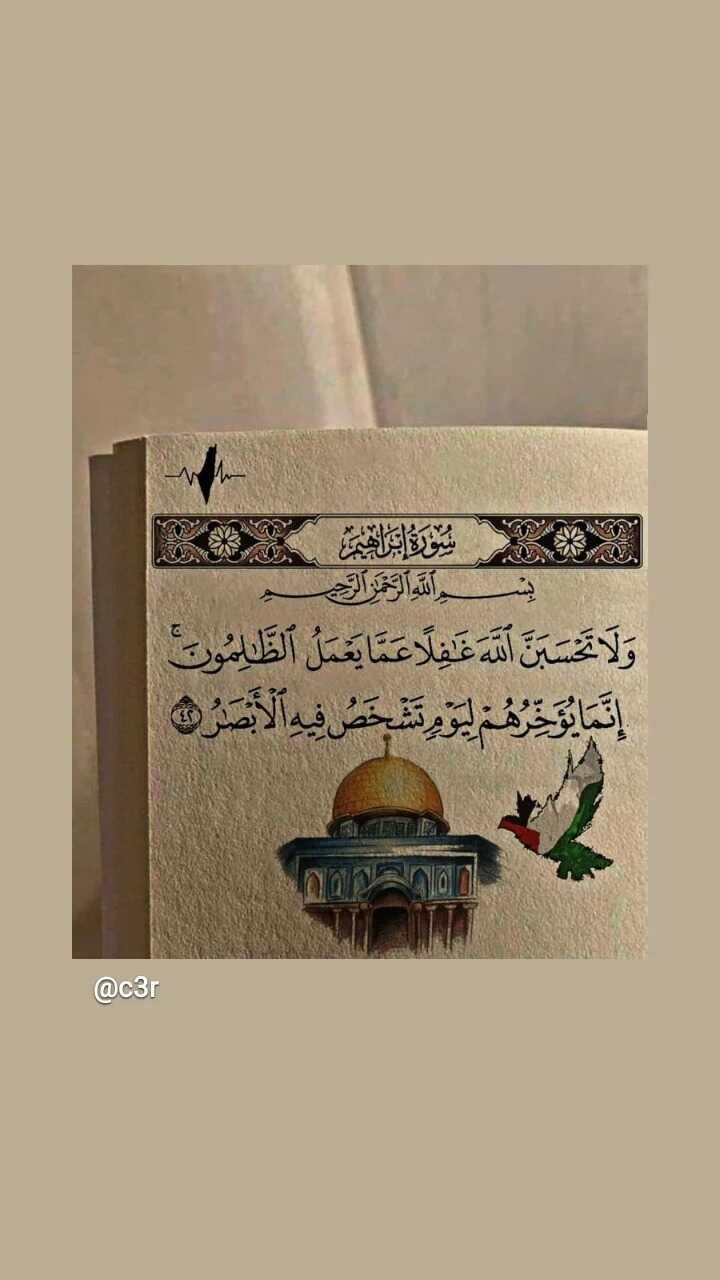 سُورَةُ إِبْرَاهِيمَ
بِسْمِ ٱللَّهِ ٱلرَّحْمَٰنِ ٱلرَّحِيمِ
وَلَا تَحْسَبَنَّ ٱللَّهَ غَٰفِلًا عَمَّا يَعْمَلُ ٱلظَّٰلِمُونَ ۚ
إِنَّمَا يُؤَخِّرُهُمْ لِيَوْمٍ تَشْخَصُ فِيهِ ٱلْأَبْصَٰرُ ٤٢
@c3r